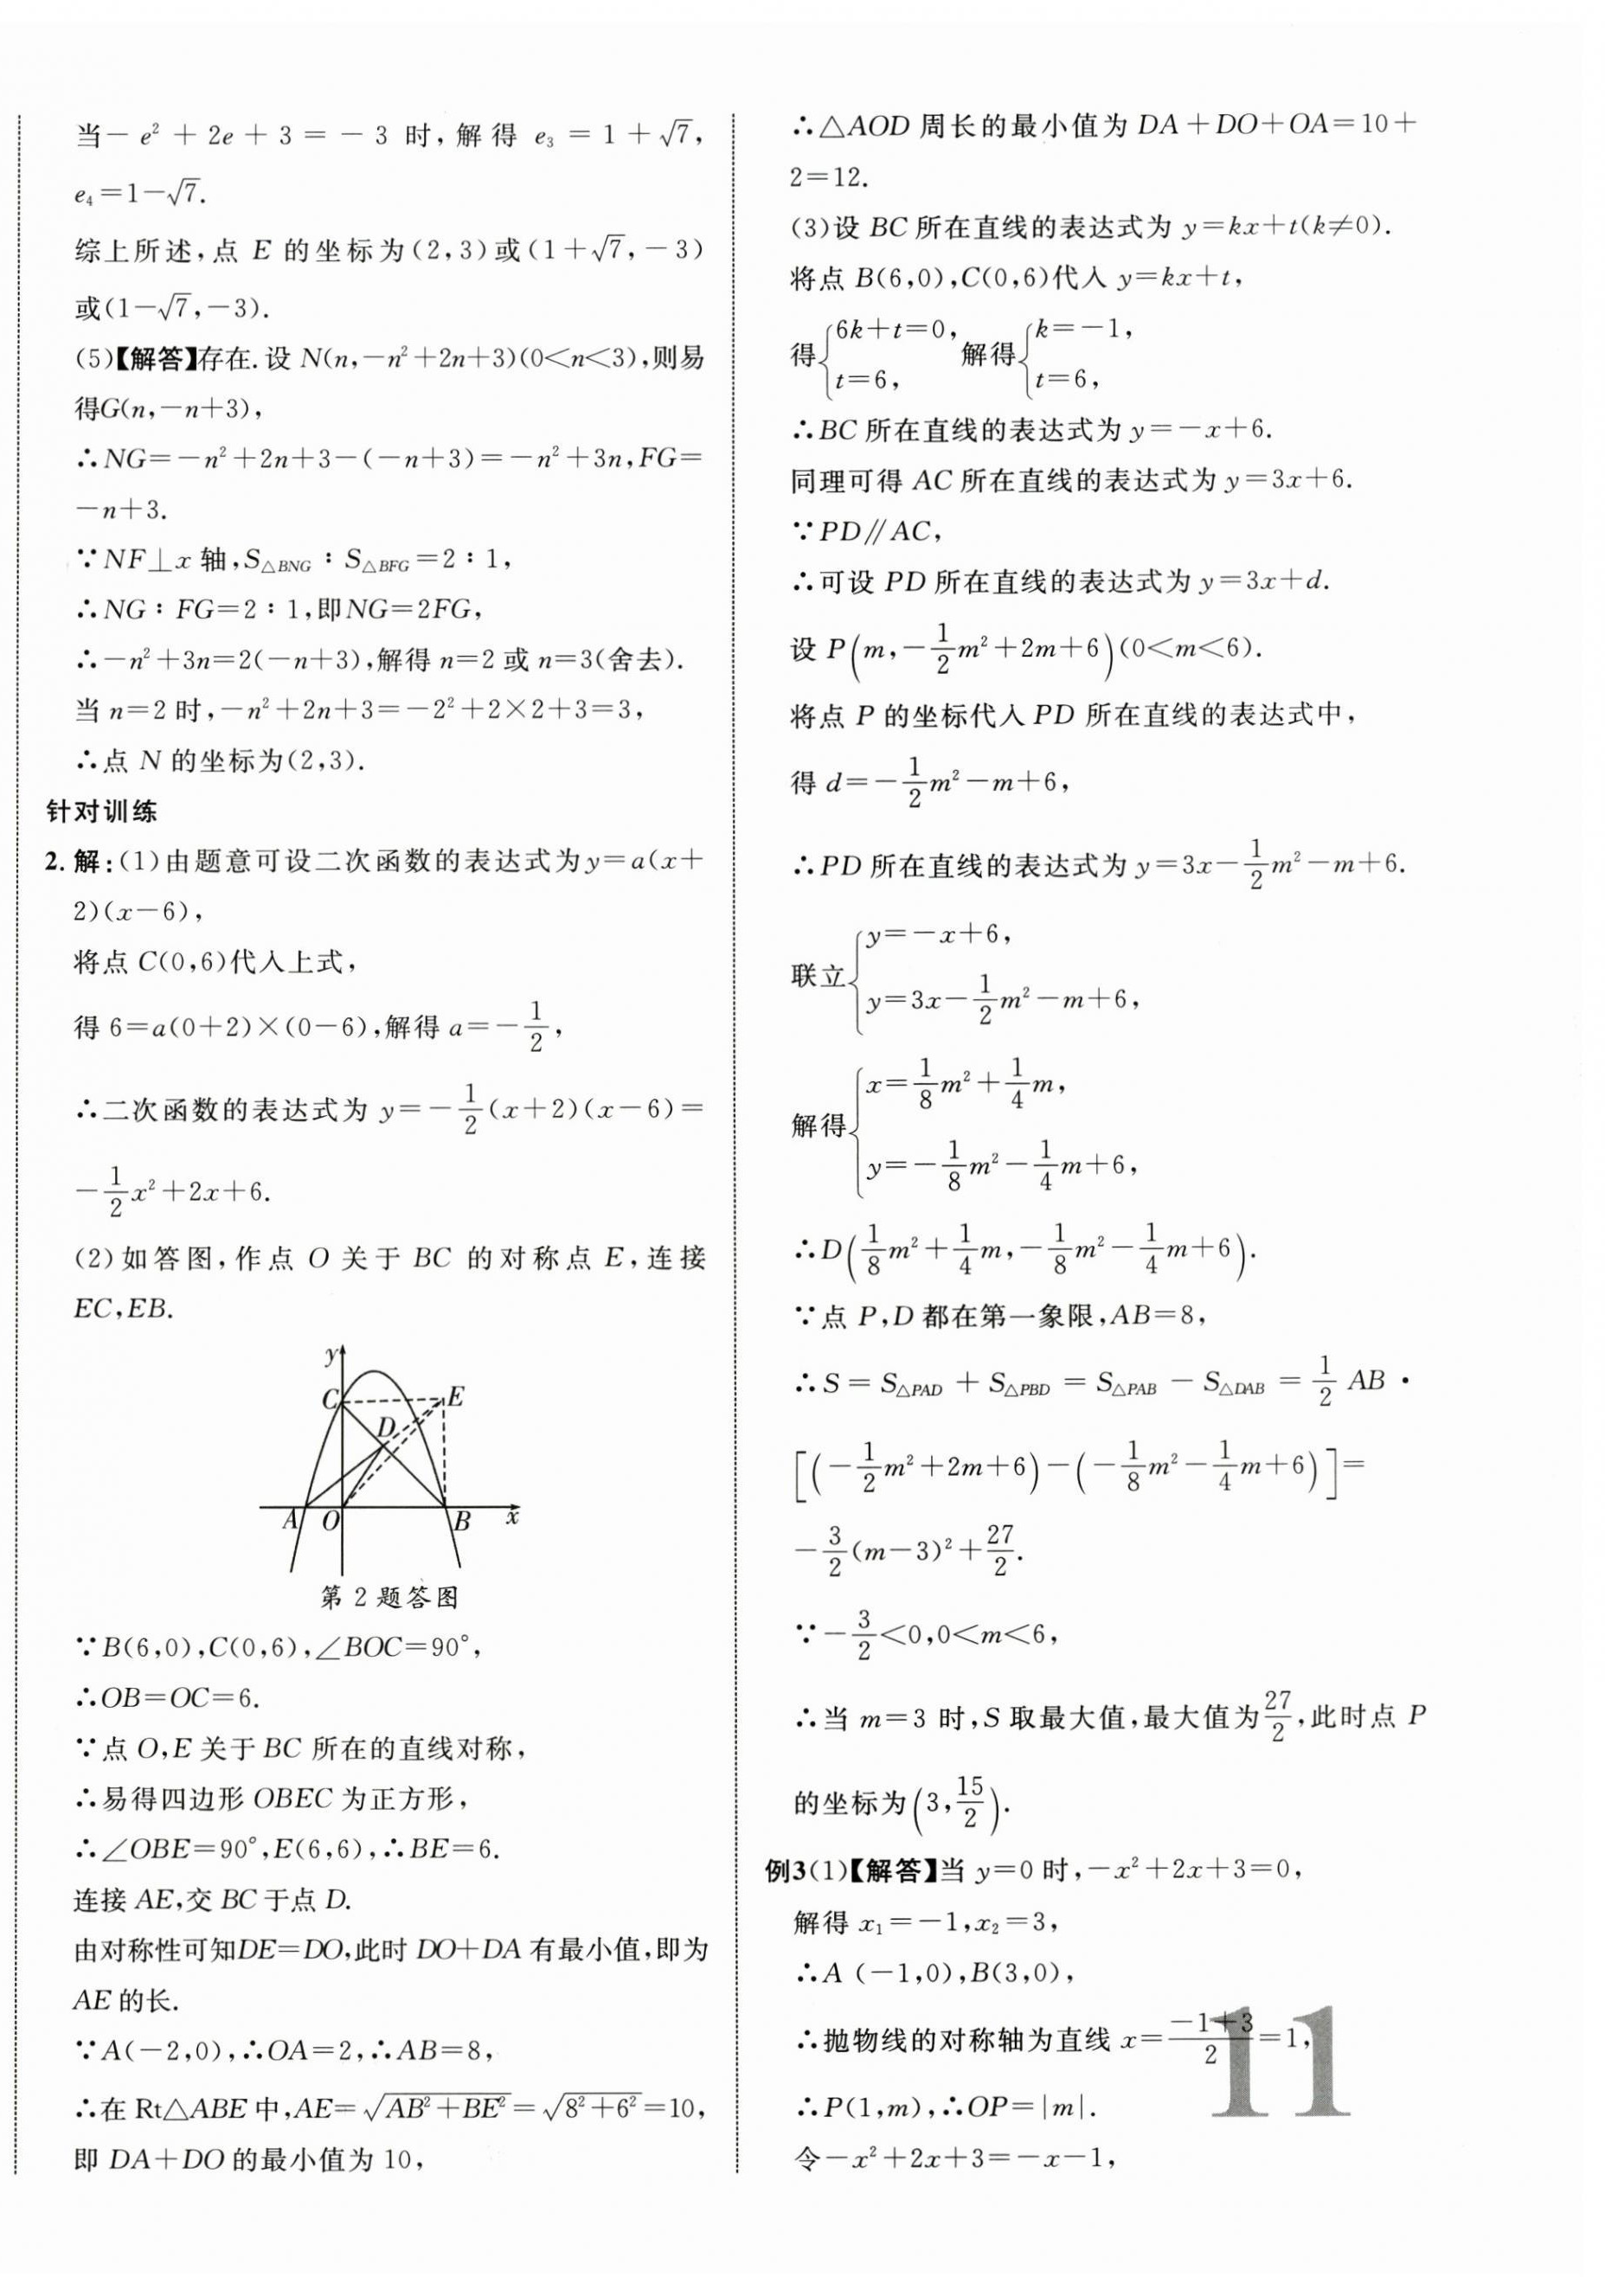 当－e²＋2e＋3＝－3 时,解得 e₃＝1＋√7,
e₄＝1－√7.
综上所述,点 E 的坐标为(2,3)或(1＋√7,－3)
或(1－√7,－3).
(5)【解答】存在.设 N(n,－n²＋2n＋3)(0＜n＜3),则易
得G(n,－n＋3),
∴NG＝－n²＋2n＋3－(－n＋3)＝－n²＋3n,FG＝
－n＋3.
∵NF⊥x 轴,S△BNG∶S△BFG＝2∶1,
∴NG∶FG＝2∶1,即NG＝2FG,
∴－n²＋3n＝2(－n＋3),解得 n＝2 或 n＝3(舍去).
当 n＝2 时,－n²＋2n＋3＝－2²＋2×2＋3＝3,
∴点 N 的坐标为(2,3).
针对训练
2. 解:(1)由题意可设二次函数的表达式为y＝a(x＋
2)(x－6),
将点 C(0,6)代入上式,
得 6＝a(0＋2)×(0－6),解得 a＝－1/2,
∴二次函数的表达式为 y＝－1/2(x＋2)(x－6)＝
－1/2x²＋2x＋6.
(2)如答图,作点 O 关于 BC 的对称点 E,连接
EC,EB.
y
C
E
D
A
O
B
x
第 2 题答图
∵B(6,0),C(0,6),∠BOC＝90°,
∴OB＝OC＝6.
∵点 O,E 关于 BC 所在的直线对称,
∴易得四边形 OBEC 为正方形,
∴∠OBE＝90°,E(6,6),∴BE＝6.
连接 AE,交 BC 于点 D.
由对称性可知DE＝DO,此时 DO＋DA 有最小值,即为
AE 的长.
∵A(－2,0),∴OA＝2,∴AB＝8,
∴在 Rt△ABE 中,AE＝√(AB²＋BE²)＝√(8²＋6²)＝10,
即 DA＋DO 的最小值为 10,
∴△AOD 周长的最小值为 DA＋DO＋OA＝10＋
2＝12.
(3)设 BC 所在直线的表达式为 y＝kx＋t(k≠0).
将点 B(6,0),C(0,6)代入 y＝kx＋t,
得{6k＋t＝0, t＝6, 解得{k＝－1, t＝6,
∴BC 所在直线的表达式为 y＝－x＋6.
同理可得 AC 所在直线的表达式为 y＝3x＋6.
∵PD∥AC,
∴可设 PD 所在直线的表达式为 y＝3x＋d.
设 P(m,－1/2m²＋2m＋6)(0＜m＜6).
将点 P 的坐标代入 PD 所在直线的表达式中,
得 d＝－1/2m²－m＋6,
∴PD 所在直线的表达式为 y＝3x－1/2m²－m＋6.
联立{y＝－x＋6,
y＝3x－1/2m²－m＋6,
解得{x＝1/8m²＋1/4m,
y＝－1/8m²－1/4m＋6,
∴D(1/8m²＋1/4m,－1/8m²－1/4m＋6).
∵点 P,D 都在第一象限,AB＝8,
∴S＝S△PAD＋S△PBD＝S△PAB－S△DAB＝1/2 AB·
[(－1/2m²＋2m＋6)－(－1/8m²－1/4m＋6)]＝
－3/2(m－3)²＋27/2.
∵－3/2＜0,0＜m＜6,
∴当 m＝3 时,S 取最大值,最大值为27/2,此时点 P
的坐标为(3,15/2).
例3(1)【解答】当 y＝0 时,－x²＋2x＋3＝0,
解得 x₁＝－1,x₂＝3,
∴A (－1,0),B(3,0),
∴抛物线的对称轴为直线 x＝(－1＋3)/2＝1,
∴P(1,m),∴OP＝|m|.
令－x²＋2x＋3＝－x－1,
11